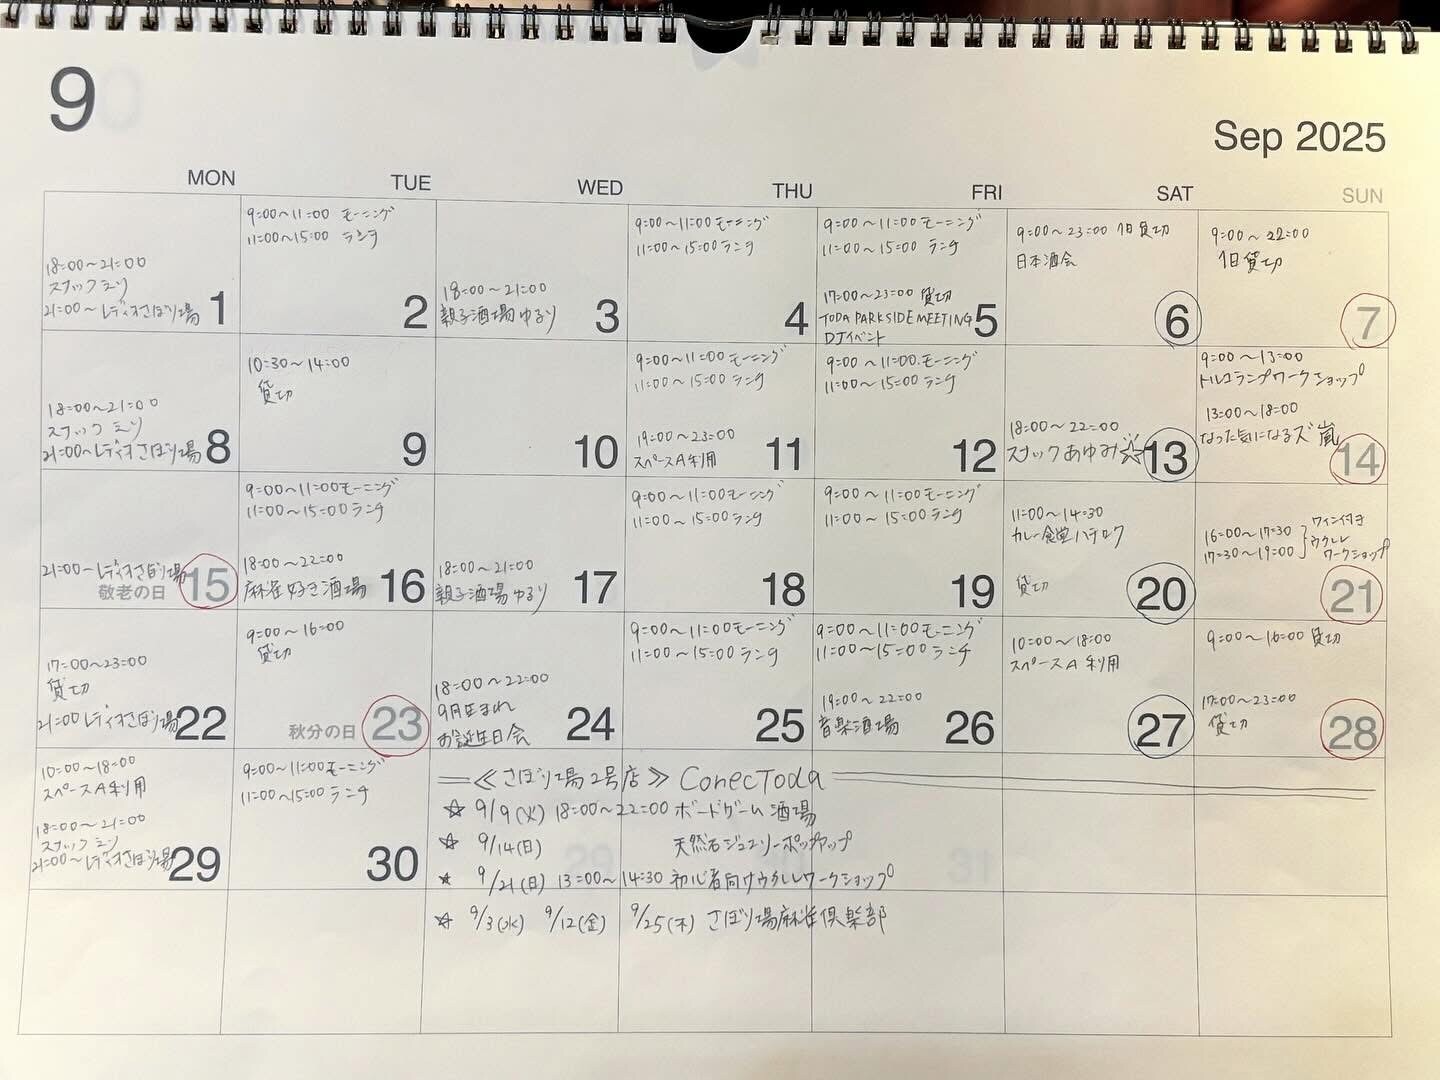 9
Sep 2025
MON TUE WED THU FRI SAT SUN
18:00~21:00
スナック ミツ
21:00~レディオさぼり場
1
9:00~11:00 モーニング
11:00~15:00 ランチ
2
18:00~21:00
親子酒場ゆるり
3
9:00~11:00モーニング
11:00~15:00 ランチ
4
9:00~11:00モーニング
11:00~15:00 ランチ
17:00~23:00 貸切
TODA PARKSIDE MEETING
DJイベント
5
9:00~23:00 1日貸切
日本酒会
6
9:00~22:00
1日貸切
7
18:00~21:00
スナック ミツ
21:00~レディオさぼり場
8
10:30~14:00
貸切
9
10
9:00~11:00モーニング
11:00~15:00ランチ
19:00~23:00
スペースA利用
11
9:00~11:00.モーニング
11:00~15:00ランチ
12
18:00~22:00
スナックあゆみ☆
13
9:00~13:00
トルコランプワークショップ
13:00~18:00
なった気になるズ嵐
14
21:00~レディオさぼり場
敬老の日
15
9:00~11:00モーニング
11:00~15:00ランチ
18:00~22:00
麻雀好き酒場
16
18:00~21:00
親子酒場ゆるり
17
9:00~11:00モーニング
11:00~15:00ランチ
18
9:00~11:00モーニング
11:00~15:00ランチ
19
11:00~14:30
カレー食堂ハチロク
貸切
20
16:00~17:30
17:30~19:00
ワイン付き
ウクレレ
ワークショップ
21
17:00~23:00
貸切
21:00 レディオさぼり場
22
9:00~16:00
貸切
秋分の日
23
18:00~22:00
9月生まれ
お誕生日会
24
9:00~11:00モーニング
11:00~15:00ランチ
25
9:00~11:00モーニング
11:00~15:00ランチ
19:00~22:00
音楽酒場
26
10:00~18:00
スペースA利用
27
9:00~16:00 貸切
17:00~23:00
貸切
28
10:00~18:00
スペースA利用
18:00~21:00
スナック ミツ
21:00~レディオさぼり場
29
9:00~11:00モーニング
11:00~15:00ランチ
30
≪さぼり場2号店≫ ConecToda
☆ 9/9(火) 18:00~22:00 ボードゲーム酒場
☆ 9/14(日) 天然石ジュエリーポップアップ
☆ 9/21(日) 13:00~14:30 初心者向けウクレレワークショップ
☆ 9/3(水) 9/12(金) 9/25(木) さぼり場麻雀倶楽部